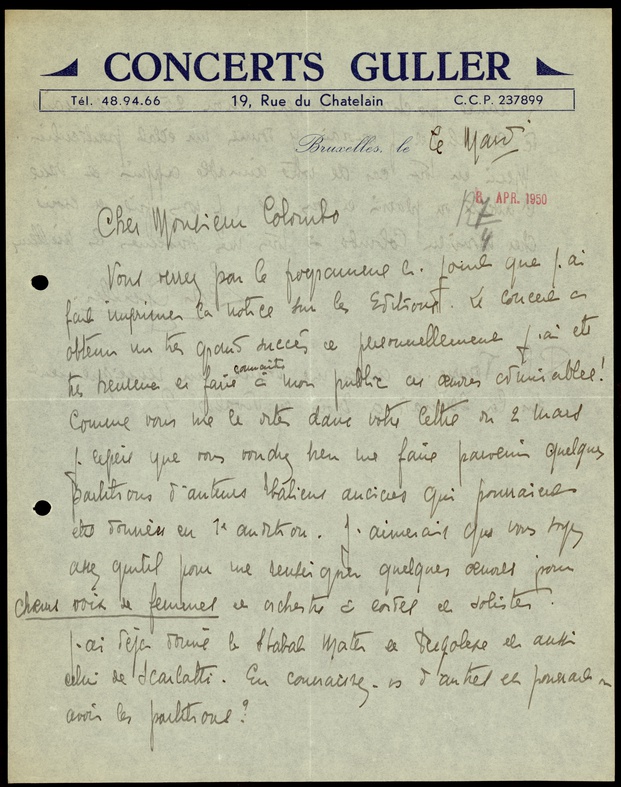 CONCERTS GULLER
Tél. 48.94.66 19, Rue du Chatelain C.C.P. 237899
Bruxelles, le Le Mardi
8. APR. 1950
Cher Monsieur Colombo
Vous verrez par le programme ci-joint que j'ai
fait imprimer la notice sur les Editions. Le concert a
obtenu un très grand succès et personnellement j'ai été
très heureuse de faire connaître à mon public ces œuvres admirables!
Comme vous me le dites dans votre lettre du 2 mars
j'espère que vous voudrez bien me faire parvenir quelques
partitions d'auteurs Italiens anciens qui pourraient
être données en 1e audition. J'aimerais que vous soyez
assez gentil pour me renseigner quelques œuvres pour
chœurs voix de femmes et orchestre à cordes et solistes.
J'ai déjà donné le Stabat Mater de Pergolese et aussi
celui de Scarlatti. En connaissez-vs d'autres et pourrait-on
avoir les partitions?